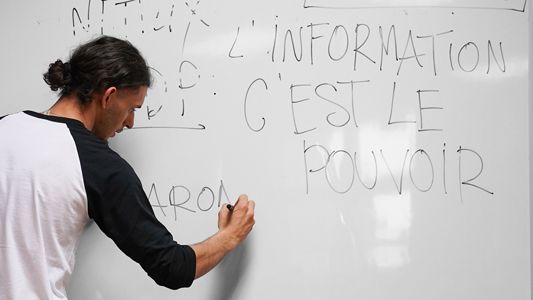 L'INFORMATION
C'EST LE
POUVOIR
ARON